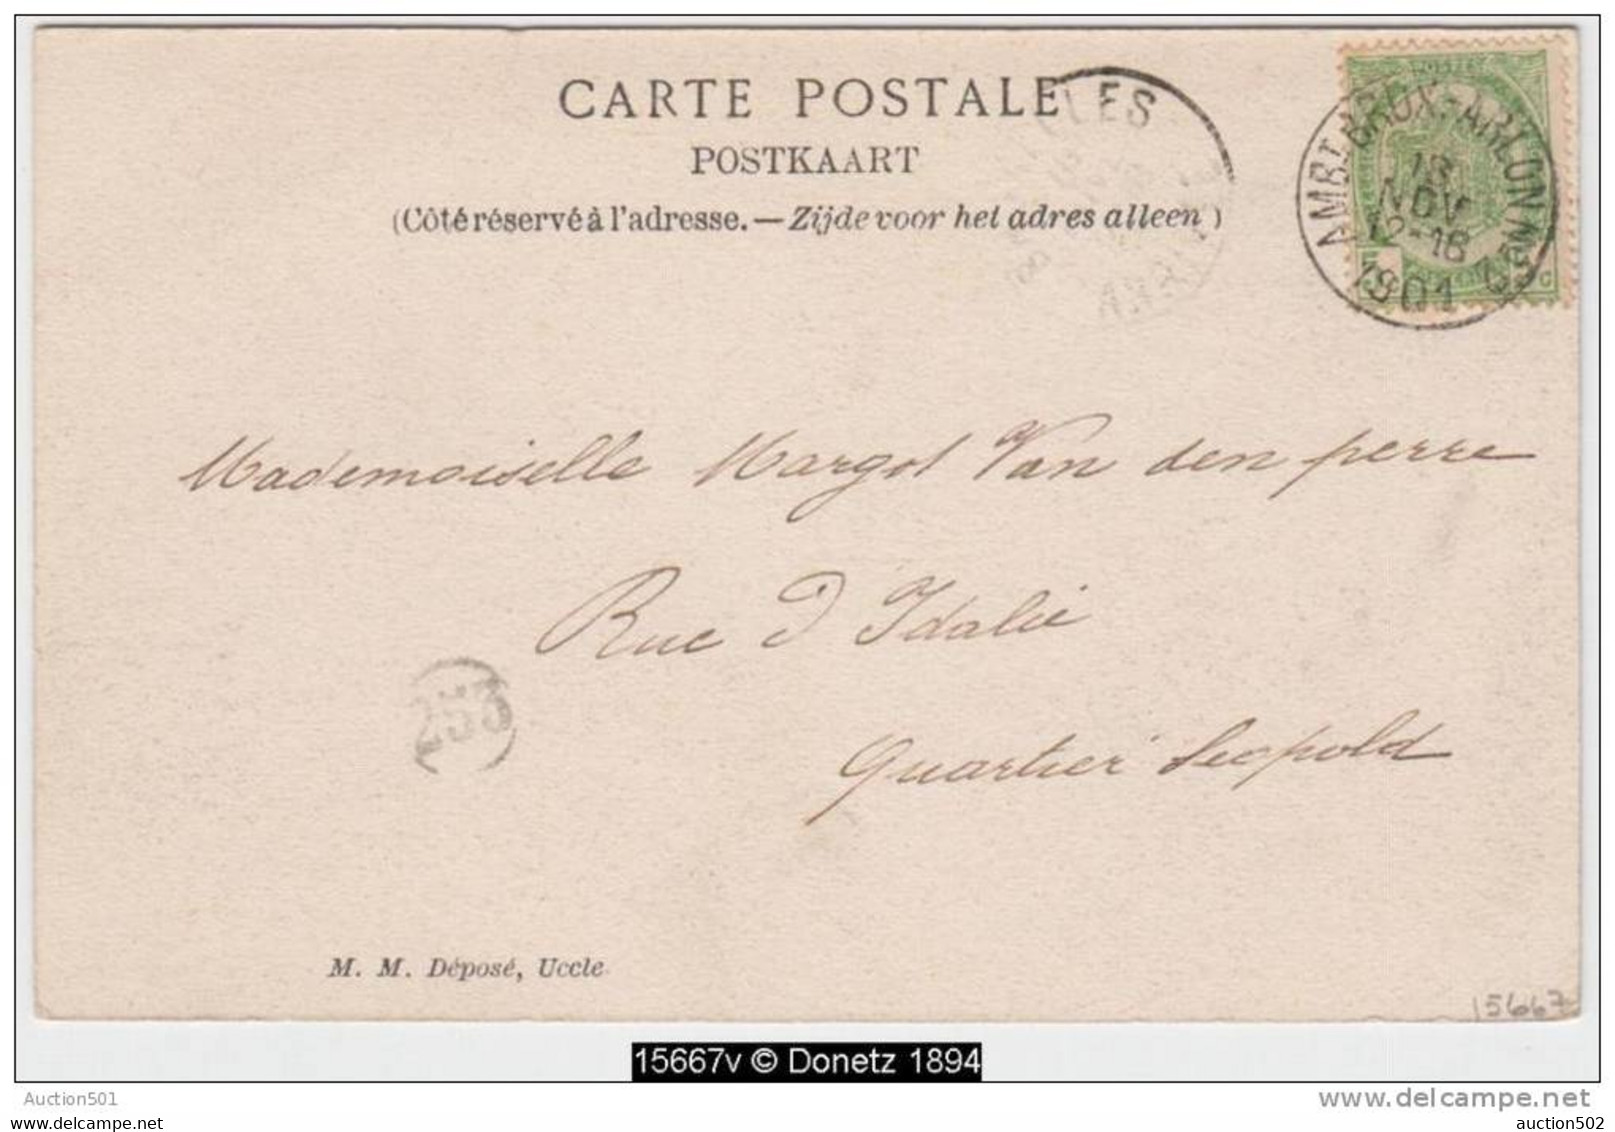 CARTE POSTALE
POSTKAART
(Côté réservé à l'adresse. — Zijde voor het adres alleen)
LES
AMBT BRUX-ARLON
13
NOV
12-18
1901
Mademoiselle Margot Van den perre
Rue D Idalie
253
Quartier Leopold
M. M. Déposé, Uccle.
15667
15667v © Donetz 1894
Auction501
www.delcampe.net
auction502
auction502